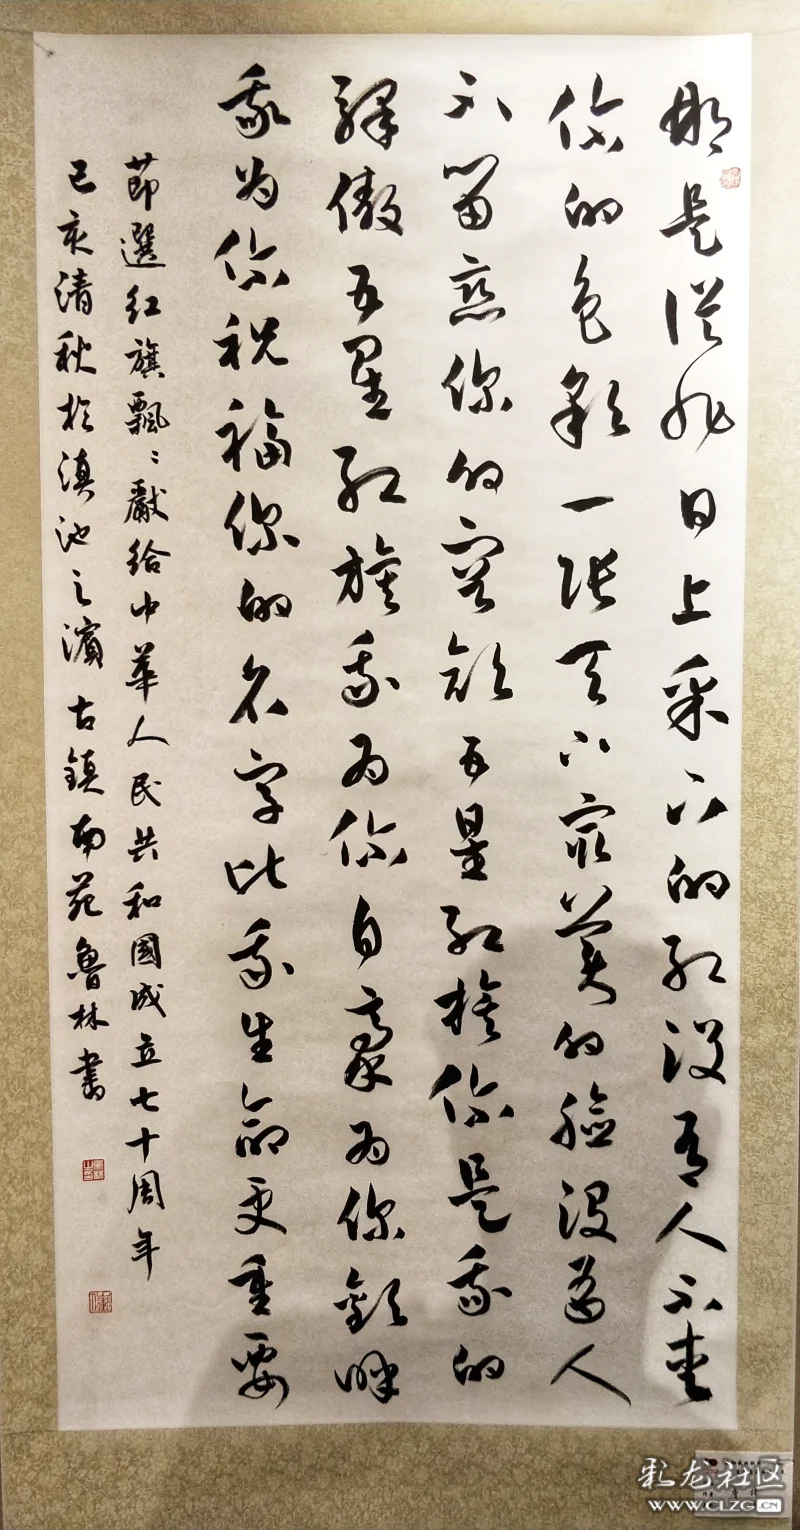 那是從旭日上采下的红没有人不爱
你的色彩一张天下最美的脸没有人
不留恋你的容颜五星红旗你是我的
骄傲五星红旗我为你自豪为你歡呼
我为你祝福你的名字比我生命更重要
節選红旗飄〻獻给中華人民共和國成立七十周年
己亥清秋於滇池之濱古鎮南苑魯林書
彩龙社区
WWW.CLZG.CN